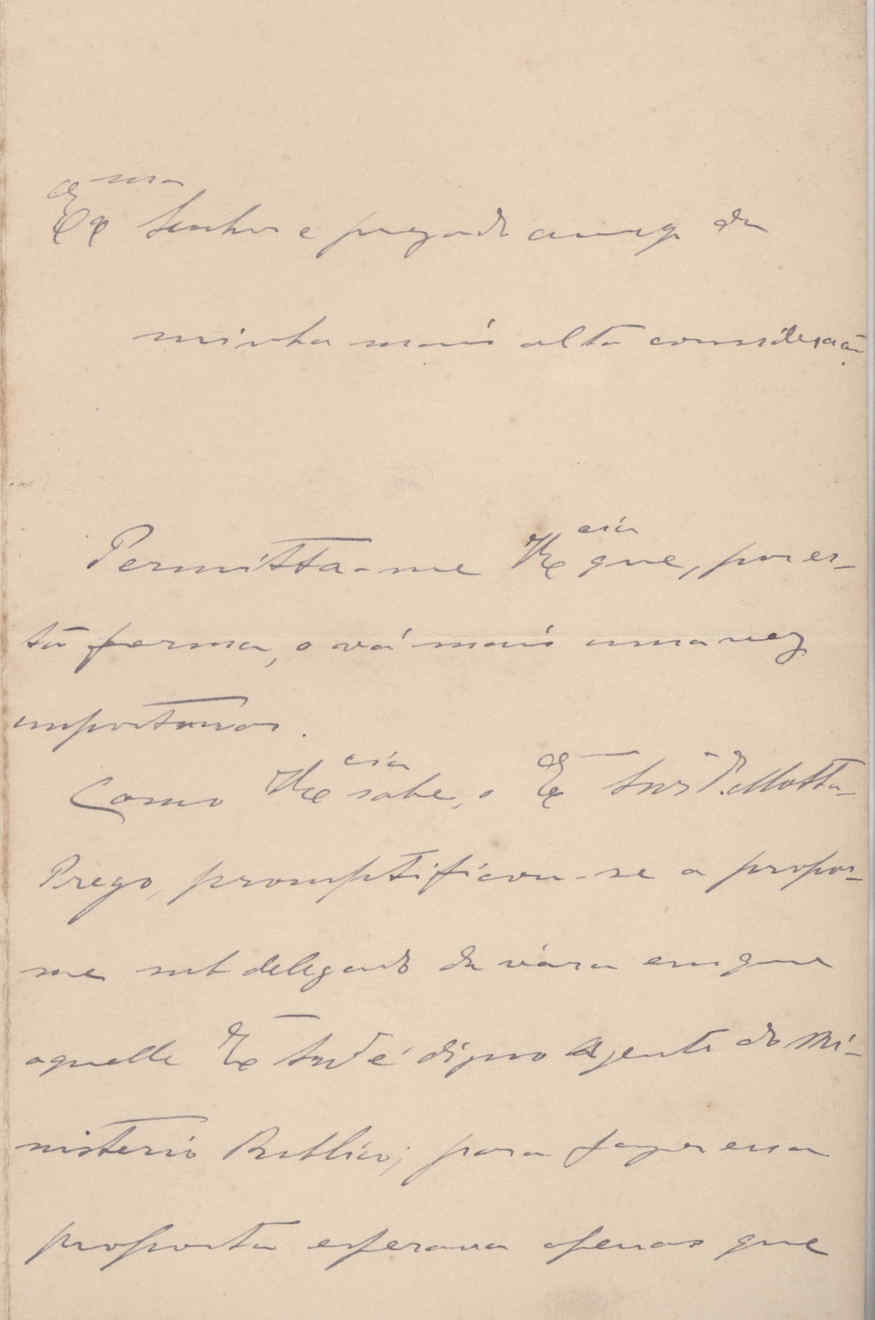 Ex.mo Senhor e presado amigo da
minha mais alta consideração
Permitta-me V. Ex.cia que, por es-
ta forma, o vá mais uma vez
importunar.
Como V. Ex.cia sabe, o Ex.mo Snr. Dr. Motta
Prego, promptificou-se a propor-
me sub delegado da vara em que
aquelle Ex.mo Snr. é digno Agente do Mi-
nisterio Publico; para fazer essa
proposta esperava apenas que